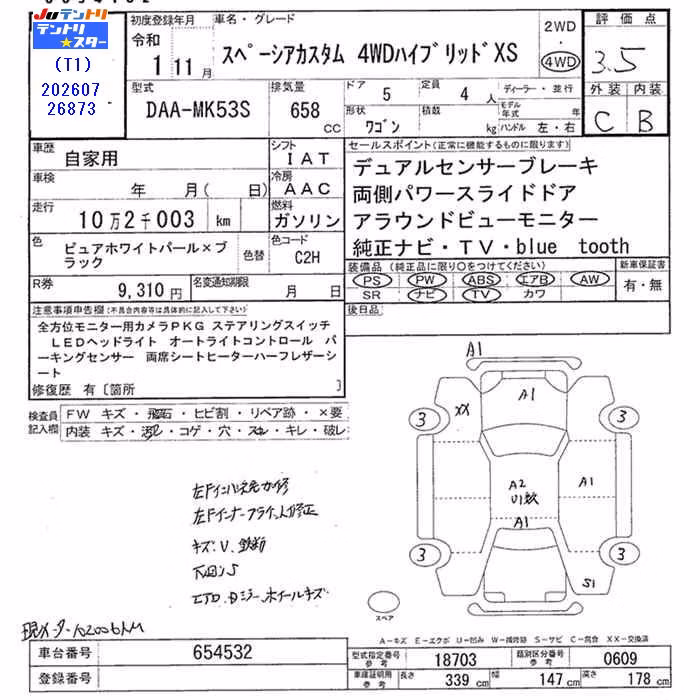 Juテントリ
テントリ★スター
(T1)
202607
26873
初度登録年月
令和
1 11月
車名・グレード
スペーシアカスタム 4WDハイブリッドXS
2WD
・
4WD
評価点
3.5
外装 内装
C B
型式
DAA-MK53S
排気量
658
CC
ドア
5
定員
4人
形状
ワゴン
積数
kg
ディーラー・並行
モデル年式 年
ハンドル 左・右
車歴
自家用
シフト
IAT
車検
年 月( 日)
冷房
AAC
走行
10万2千003 km
燃料
ガソリン
色
ピュアホワイトパール×ブラック
色替
色コード
C2H
R券
9,310円
名変通知期限
月 日
セールスポイント(正常に機能するものに限ります)
デュアルセンサーブレーキ
両側パワースライドドア
アラウンドビューモニター
純正ナビ・TV・blue tooth
装備品(純正品に限り○をつけてください)
PS PW ABS エアB AW
SR ナビ TV カワ
新車保証書
有・無
後日品
注意事項申告欄(不具合内容等は具体的に記入して下さい)
全方位モニター用カメラPKG ステアリングスイッチ
LEDヘッドライト オートライトコントロール パ
ーキングセンサー 両席シートヒーターハーフレザーシ
ート
修復歴 有〔箇所 〕
検査員記入欄
FW キズ・飛石・ヒビ割・リペア跡・×要
内装 キズ・汚レ・コゲ・穴・スレ・キレ・破レ
キズ、V、鉄粉
下回りS
現メーター102006KM
A1
A1
XX
3
3
A2
U1
A1
A1
3
3
S1
スペア
A-キズ E-エクボ U-凹み W-補修跡 S-サビ C-腐食 XX-交換済
車台番号
654532
登録番号
型式指定番号参考
18703
類別区分番号参考
0609
車庫証明用参考
長さ 339 cm 幅 147 cm 高さ 178 cm